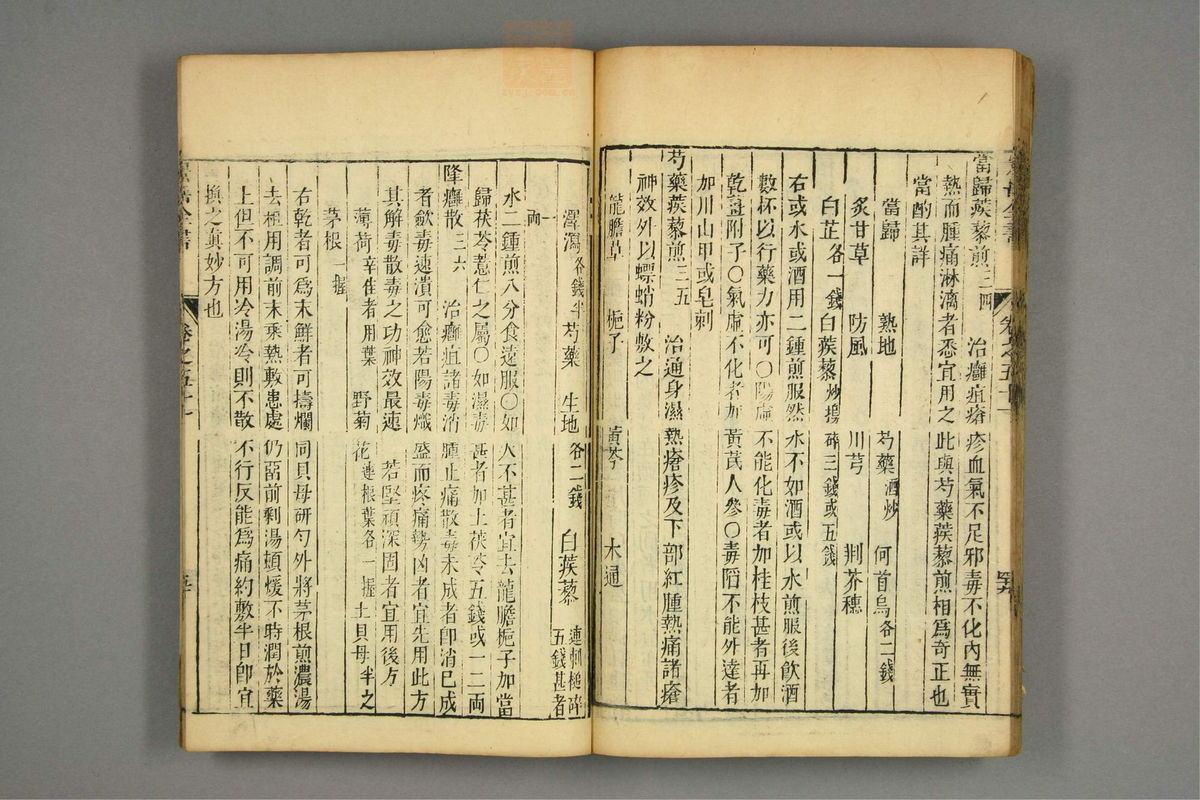 當歸蒺藜煎三四 治癰疽瘡疹血氣不足邪毒不化內無實
熱而腫痛淋漓者悉宜用之此與芍藥蒺藜煎相爲奇正也
當酌其詳
當歸 熟地 芍藥酒炒 何首烏各二錢
炙甘草 防風 川芎 荆芥穗
白芷各一錢 白蒺藜炒搗碎三錢或五錢
右或水或酒用二鍾煎服然水不如酒或以水煎服後飲酒
數杯以行藥力亦可○陽虛不能化毒者加桂枝甚者再加
乾薑附子○氣虛不化者加黃芪人參○毒陷不能外達者
加川山甲或皂刺
芍藥蒺藜煎三五 治通身濕熱瘡疹及下部紅腫熱痛諸瘡
神效外以螵蛸粉敷之
龍膽草 梔子 黃芩 木通
澤瀉各錢半 芍藥 生地各二錢 白蒺藜連刺槌碎五錢甚者
一兩
水二鍾煎八分食遠服○如火不甚者宜去龍膽梔子加當
歸茯苓薏仁之屬○如濕毒甚者加土茯苓五錢或一二兩
降癰散三六 治癰疽諸毒消腫止痛散毒未成者卽消已成
者斂毒速潰可愈若陽毒熾盛而疼痛勢凶者宜先用此方
其解毒散毒之功神效最速 若堅頑深固者宜用後方
薄荷辛佳者用葉 野菊花連根葉各一握 土貝母半之
茅根一握
右乾者可爲末鮮者可擣爛同貝母研勻外將茅根煎濃湯
去柤用調前末乘熱敷患處仍留前剩湯頓煖不時潤於藥
上但不可用冷湯冷則不散不行反能爲痛約敷半日卽宜
換之眞妙方也
景岳全書 卷之五十一 五十